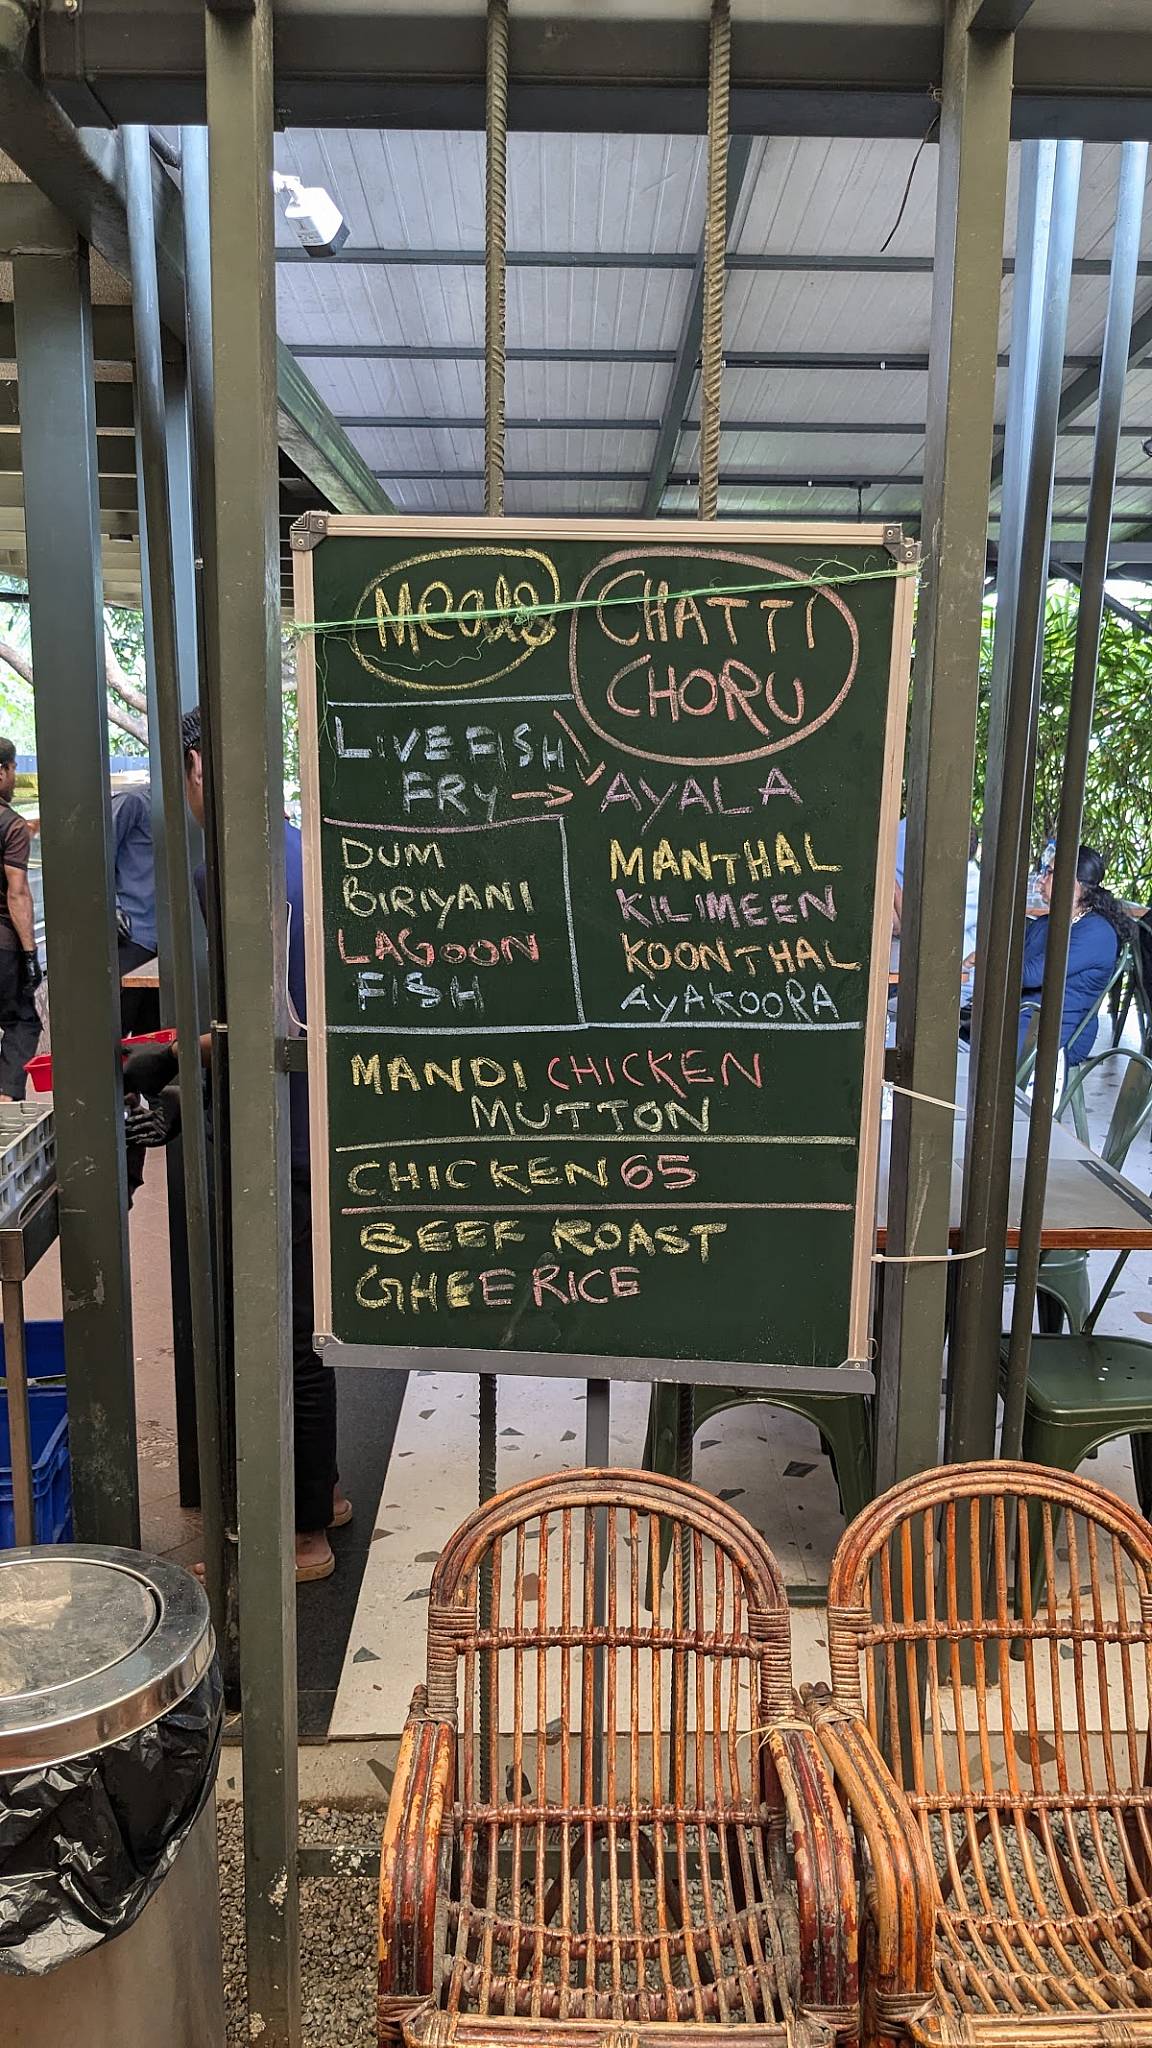 Meals
CHATTI
CHORU
LIVE FISH
FRY → AYALA
MANTHAL
KILIMEEN
KOONTHAL
AYAKOORA
DUM
BIRIYANI
LAGOON
FISH
MANDI CHICKEN
MUTTON
CHICKEN 65
BEEF ROAST
GHEE RICE